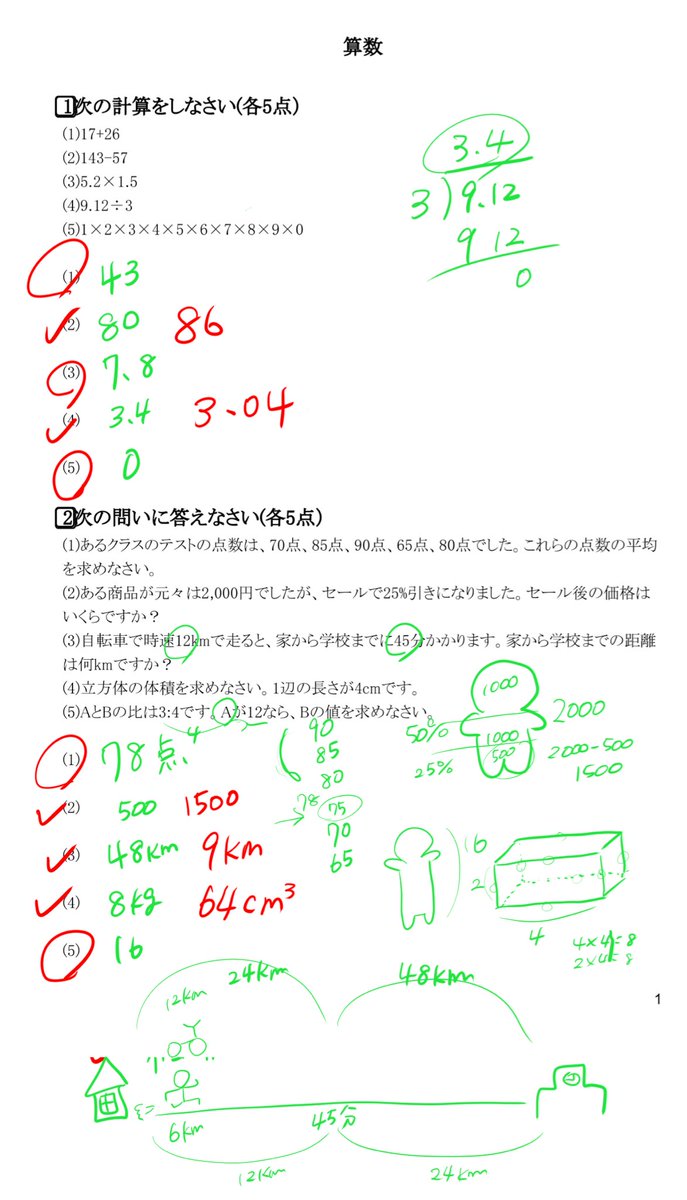 算数
1次の計算をしなさい(各5点)
(1)17+26
(2)143-57
(3)5.2×1.5
(4)9.12÷3
(5)1×2×3×4×5×6×7×8×9×0
3.4
3)9.12
9 12
0
(1) 43
(2) 80 86
(3) 7.8
(4) 3.4 3.04
(5) 0
2次の問いに答えなさい(各5点)
(1)あるクラスのテストの点数は、70点、85点、90点、65点、80点でした。これらの点数の平均
を求めなさい。
(2)ある商品が元々は2,000円でしたが、セールで25%引きになりました。セール後の価格は
いくらですか？
(3)自転車で時速12kmで走ると、家から学校までに45分かかります。家から学校までの距離
は何kmですか？
(4)立方体の体積を求めなさい。1辺の長さが4cmです。
(5)AとBの比は3:4です。Aが12なら、Bの値を求めなさい。
4
(1) 78点
(2) 500 1500
(3) 48km 9km
(4) 8kg 64cm³
(5) 16
90
85
80
78 75
70
65
50%
25%
1000
1000
500
2000
2000-500
1500
16
2
4
4×4=8
2×4=8
1
12km 24km 48km
6km 45分
12km 24km